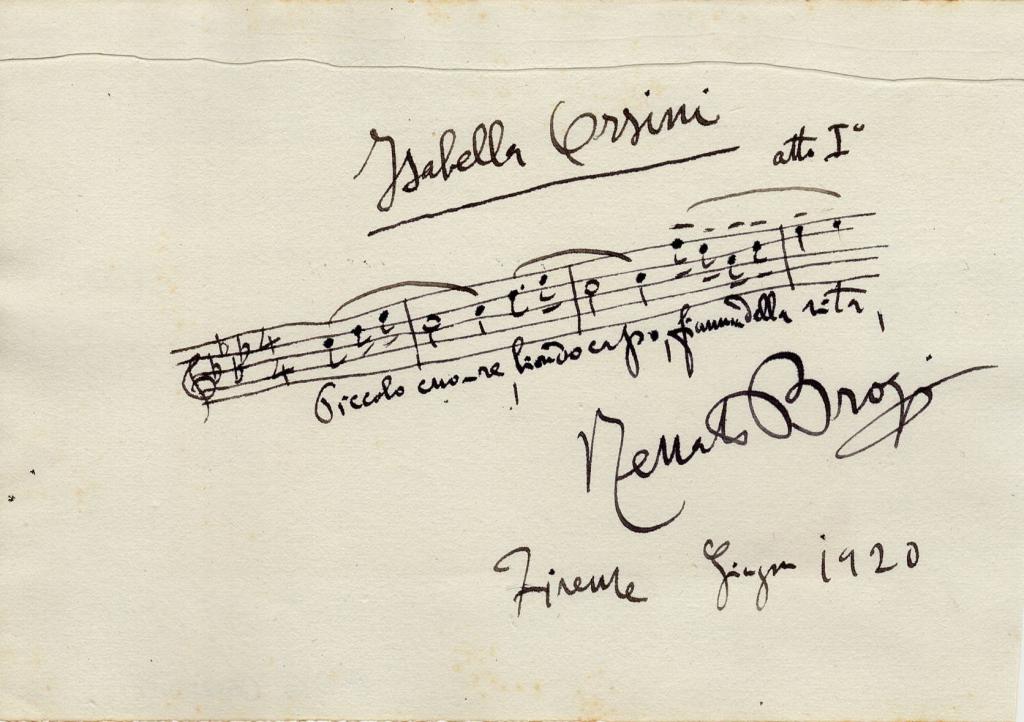 Isabella Orsini
atto Iº
4
4
Piccolo cuo-re, biondo capo, fiamma della vita,
Renato Brogi
Firenze Giugno 1920